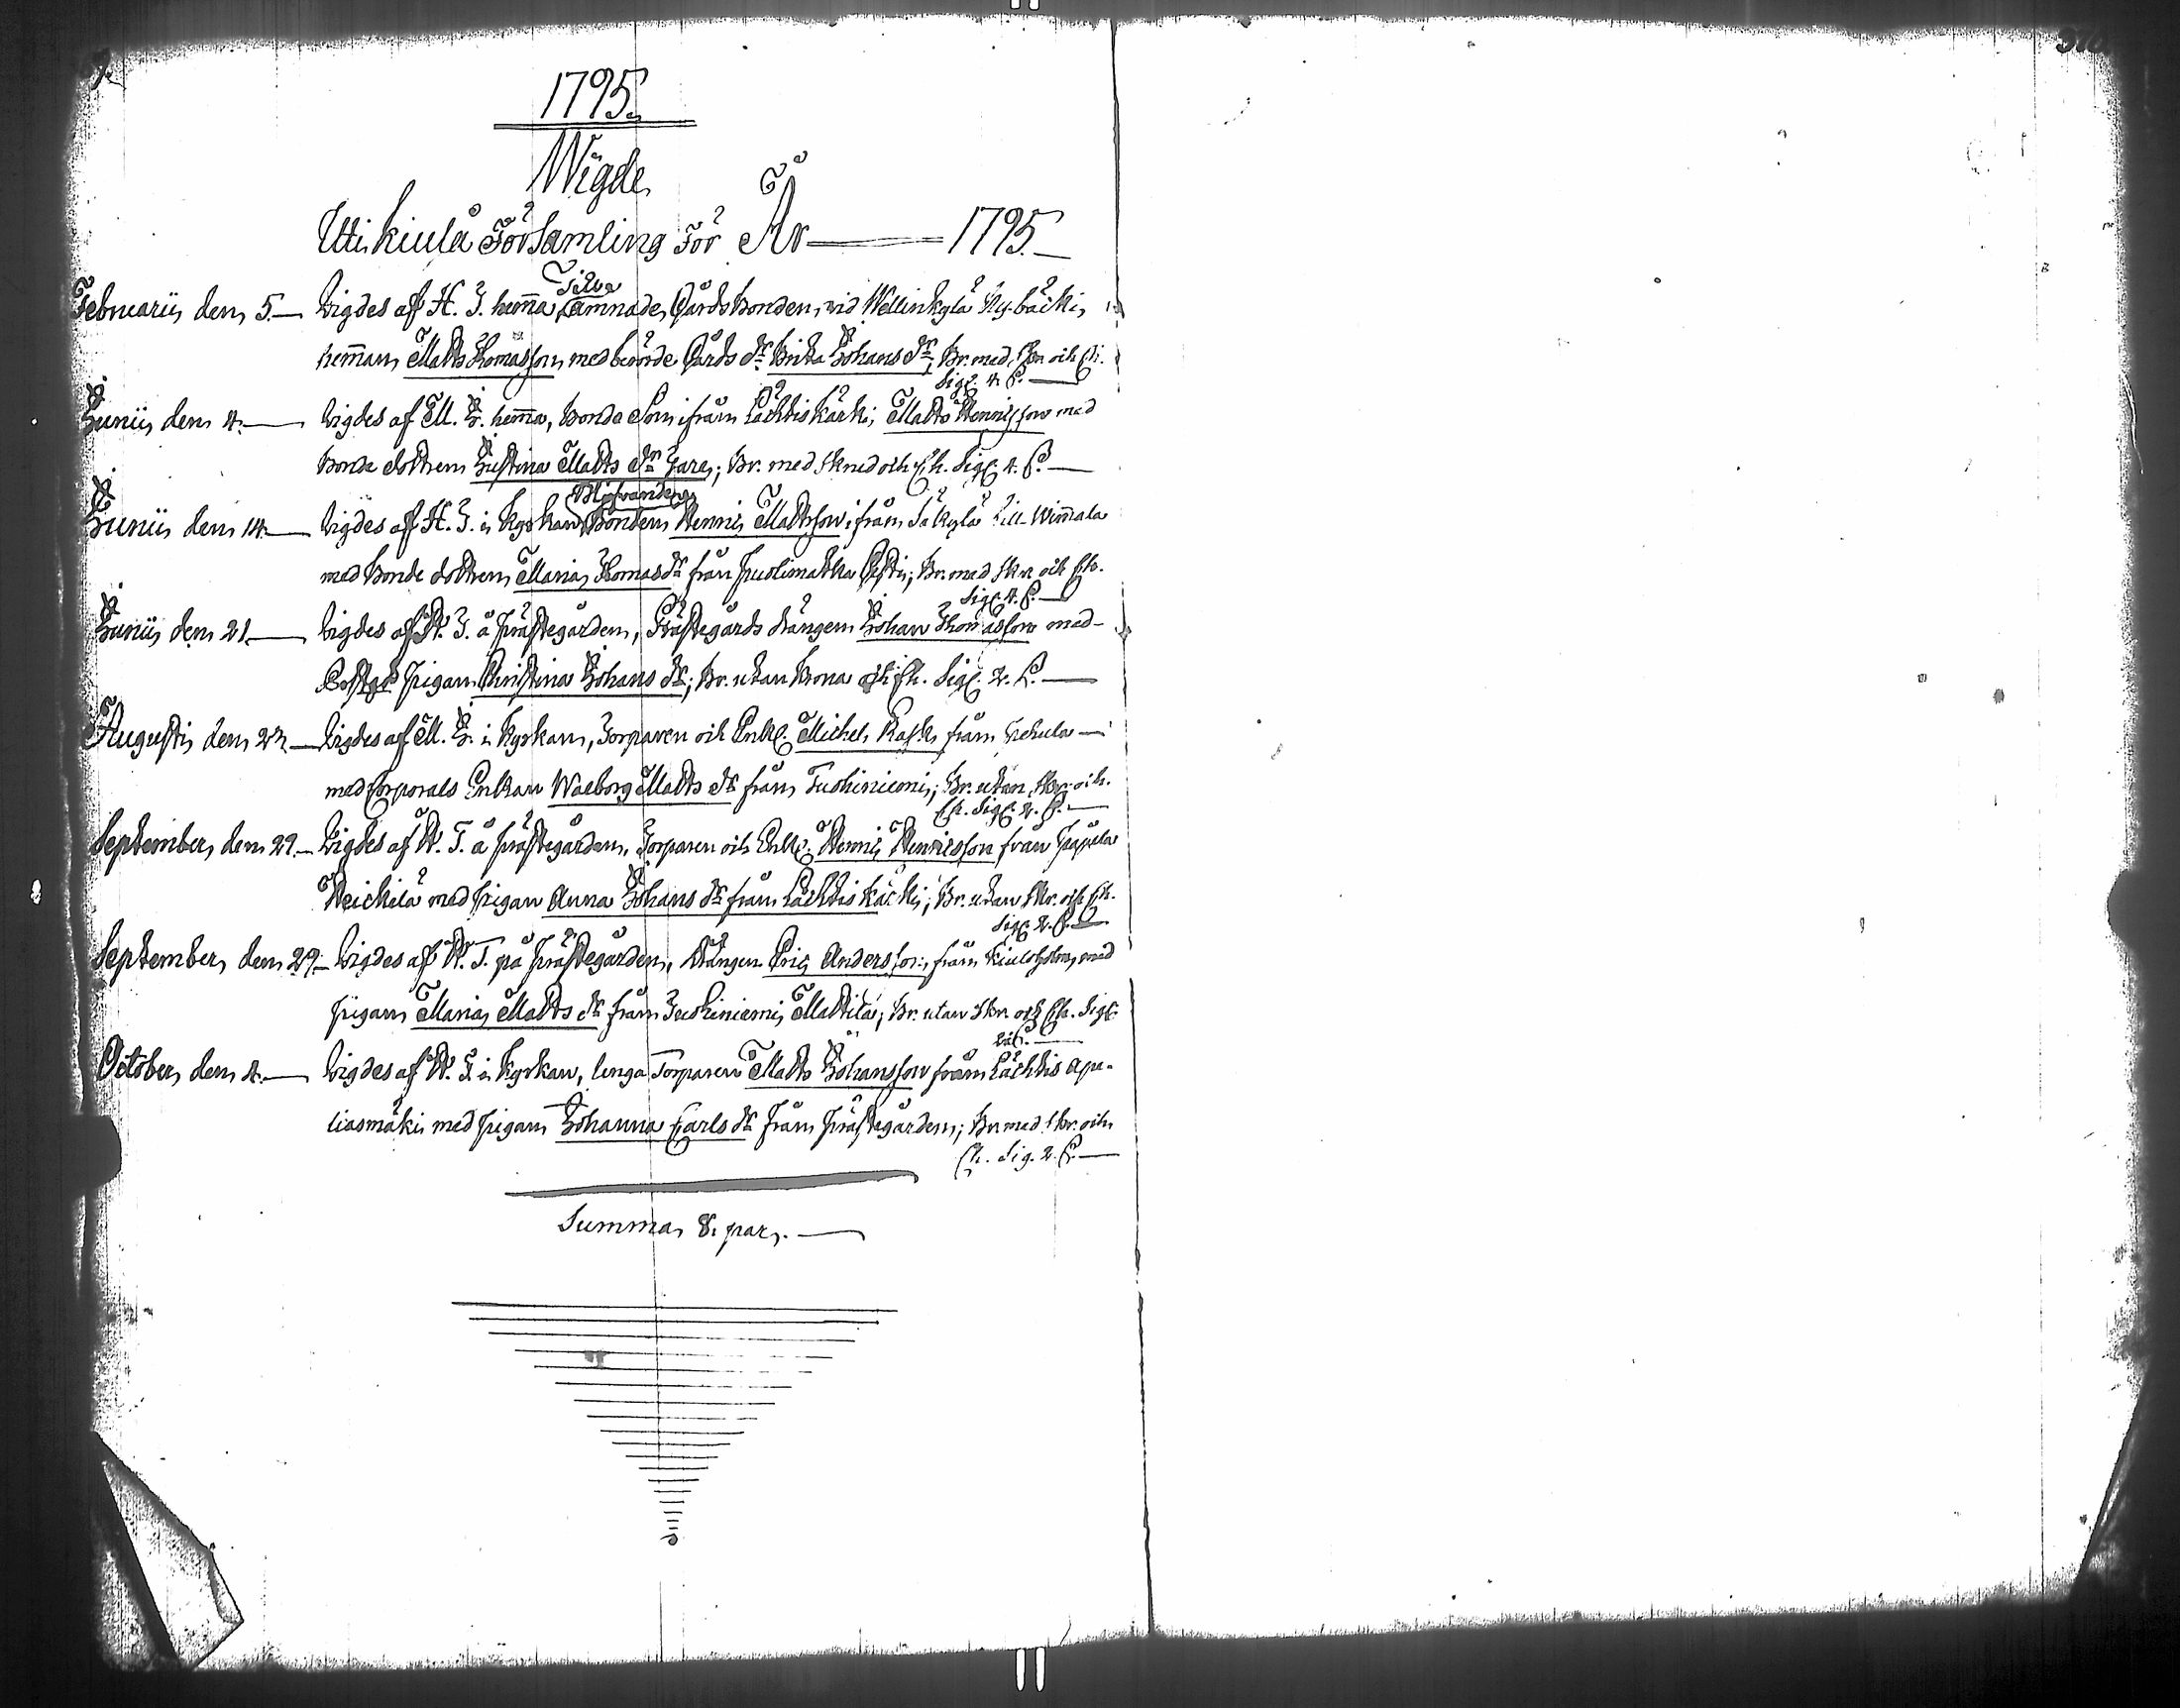 1795.
Wigde
Uti Kiula Församling för År 1795.
Februarii den 5. Wigdes af H. T. hemma Lamnade Gårds Bonden vid Wellinkylä Ny-bacKi
hemman Matts Thomasson med berörde Gårds dr Brita Johans dr, Br. med Skr och Ch.
Sigl. 4 C.
Junii den 4. Wigdes af M. J. hemma, Bonde Son ifrån Lächtis Kärki, Matts Henricsson med
Bonde dottren Justina Matts dr Jara; Br. med skrud och Ch. Sigl. 4. C.
Blifvande
Junii den 14. Wigdes af H. T. i Kyrkan Bonden Henric Mattsson ifrån Säkylä Lill-Wimmala
med Bonde dottren Maria Thomas dr från Puolimatka Efti; Br. med Skr och Ch.
Sigl. 4. C.
Junii den 21. Wigdes af H. T. å Prästegården, Prästegårds drängen Johan Thomasson med
pigan Christina Johans dr; Br. utan Krona och Ch. Sigl. 2. C.
Augusti den 27. Wigdes af M. J. i Kyrkan, Torparen och Enkl. Michel Rask från
med Corporals Enkan Walborg Matts dr från Tuohiniemi; Br. utan Skr. och
Ch. Sigl. 2. C.
September den 29. Wigdes af H. T. å Prästegården, Torparen och Enkl. Henric Henricsson från
Heickilä med Pigan Anna Johans dr från Lächtis Kärki; Br. utan Skr. och Ch.
Sigl. 2. C.
September den 29. Wigdes af H. T. på Prästegården, Drängen Eric Andersson från Kiuloholm med
Pigan Maria Matts dr från Tuohiniemi Mattila; Br. utan Skr. och Ch. Sigl.
2. C.
October den 4. Wigdes af H. T. i Kyrkan, unga Torparen Matts Johansson från Lächtis Apa-
liasmäki med Pigan Johanna Carls dr från Prästegården; Br. med Skr. och
Ch. Sig. 2. C.
Summa 8. par.